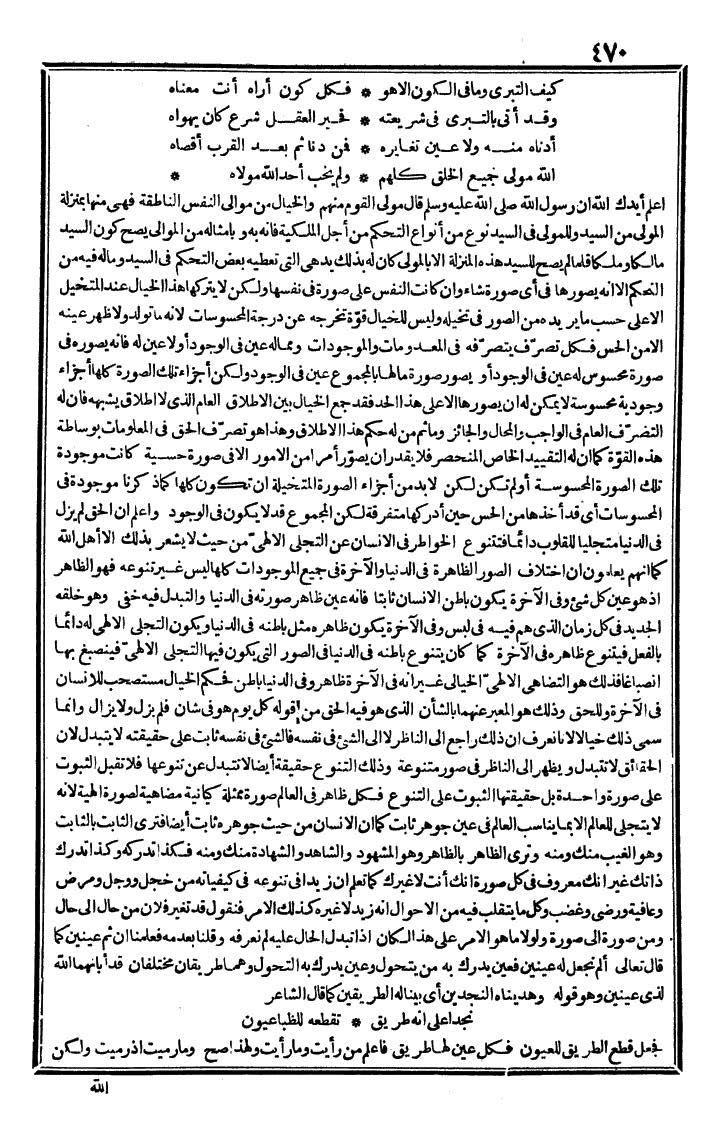 ٤٧٠
كيف التبرى ومافى الكون الاهو * فكل كون أراه أنت معناه
وقد أتى بالتبرى فى شريعته * فحير العقل شرع كان يهواه
أدناه منه ولا عين تغايره * فمن دنا ثم بعد القرب أقصاه
الله مولى جميع الخلق كلهم * ولم يخب أحد الله مولاه *
اعلم أيدك الله ان رسول الله صلى الله عليه وسلم قال مولى القوم منهم والخيال من موالى النفس الناطقة فهى منها بمنزلة
المولى من السيد وللمولى فى السيد نوع من أنواع التحكم من أجل الملكية فانه به وبامثاله من الموالى يصح كون السيد
مالكا وملكا فلما لم يصح للسيد هذه المنزلة الا بالمولى كان له بذلك يد هى التى تعطيه بعض التحكم فى السيد وماله فيه من
التحكم الا انه يصورها فى أى صورة شاء وان كانت النفس على صورة فى نفسها ولكن لا يتركها هذا الخيال عند المتخيل
الا على حسب ما يريده من الصور فى تخيله وليس للخيال قوّة تخرجه عن درجة المحسوسات لانه ما تولد ولا ظهر عينه
الا من الحس فكل تصرّف يتصرّفه فى المعدومات والموجودات ومماله عين فى الوجود أو لا عين له فانه يصوره فى
صورة محسوس له عين فى الوجود أو يصور صورة مالها بالمجموع عين فى الوجود ولكن أجزاء تلك الصورة كلها أجزاء
وجودية محسوسة لا يمكن له ان يصورها الا على هذا الحد فقد جمع الخيال بين الاطلاق العام الذى لا اطلاق يشبهه فان له
التصرّف العام فى الواجب والمحال والجائز وما ثم من له حكم هذا الاطلاق وهذا هو تصرّف الحق فى المعلومات بوساطة
هذه القوّة كما ان له التقييد الخاص المنحصر فلا يقدر ان يصوّر أمرا من الامور الا فى صورة حسية كانت موجودة
تلك الصورة المحسوسة أولم تكن لكن لا بد من أجزاء الصورة المتخيلة ان تكون كلها كما ذكرنا موجودة فى
المحسوسات أى قد أخذها من الحس حين أدركها متفرقة لكن المجموع قد لا يكون فى الوجود واعلم ان الحق لم يزل
فى الدنيا متجليا للقلوب دائما فتتنوع الخواطر فى الانسان عن التجلى الالهىّ من حيث لا يشعر بذلك الا أهل الله
كما انهم يعلمون ان اختلاف الصور الظاهرة فى الدنيا والآخرة فى جميع الموجودات كلها ليس غير تنوعه فهو الظاهر
اذ هو عين كل شئ وفى الآخرة يكون باطن الانسان ثابتا فانه عين ظاهر صورته فى الدنيا والتبدل فيه خفى وهو خلقه
الجديد فى كل زمان الذى هم فيه فى لبس وفى الآخرة يكون ظاهره مثل باطنه فى الدنيا ويكون التجلى الالهى له دائما
بالفعل فيتنوع ظاهره فى الآخرة كما كان يتنوع باطنه فى الدنيا فى الصور التى يكون فيها التجلى الالهىّ فينصبغ بها
انصباغا فذلك هو التضاهى الالهىّ الخيالى غير انه فى الآخرة ظاهر وفى الدنيا باطن فحكم الخيال مستصحب للانسان
فى الآخرة وللحق وذلك هو المعبر عنهما بالشأن الذى هو فيه الحق من قوله كل يوم هو فى شان فلم يزل ولا يزال وانما
سمى ذلك خيالا لانا نعرف ان ذلك راجع الى الناظر لا الى الشئ فى نفسه فالشئ فى نفسه ثابت على حقيقته لا يتبدل لان
الحقائق لا تتبدل ويظهر الى الناظر فى صور متنوعة وذلك التنوع حقيقة أيضا لا تتبدل عن تنوعها فلا تقبل الثبوت
على صورة واحدة بل حقيقتها الثبوت على التنوع فكل ظاهر فى العالم صورة ممثلة كيانية مضاهية لصورة الهية لانه
لا يتجلى للعالم الا بما يناسب العالم فى عين جوهر ثابت كما ان الانسان من حيث جوهره ثابت أيضا فترى الثابت بالثابت
وهو الغيب منك ومنه وترى الظاهر بالظاهر وهو المشهود والشاهد والشهادة منك ومنه فكذا تدركه وكذا تدرك
ذاتك غير انك معروف فى كل صورة انك أنت لا غيرك كما تعلم ان زيدا فى تنوعه فى كيفياته من خجل ووجل ومرض
وعافية ورضى وغضب وكل ما يتقلب فيه من الاحوال انه زيد لا غيره كذلك الامر فنقول قد تغير فلان من حال الى حال
ومن صورة الى صورة ولولا ما هو الامر على هذا لكان اذا تبدل الحال عليه لم نعرفه وقلنا بعدمه فعلمنا ان ثم عينين كما
قال تعالى ألم نجعل له عينين فعين يدرك به من يتحول وعين يدرك به التحول وهما طريقان مختلفان قد أبانهما الله
لذى عينين وهو قوله وهديناه النجدين أى بينا له الطريقين كما قال الشاعر
نجدا على انه طريق * تقطعه للظبا عيون
فجعل قطع الطريق للعيون فكل عين لها طريق فاعلم من رأيت وما رأيت ولهذا صح وما رميت اذ رميت ولكن
الله